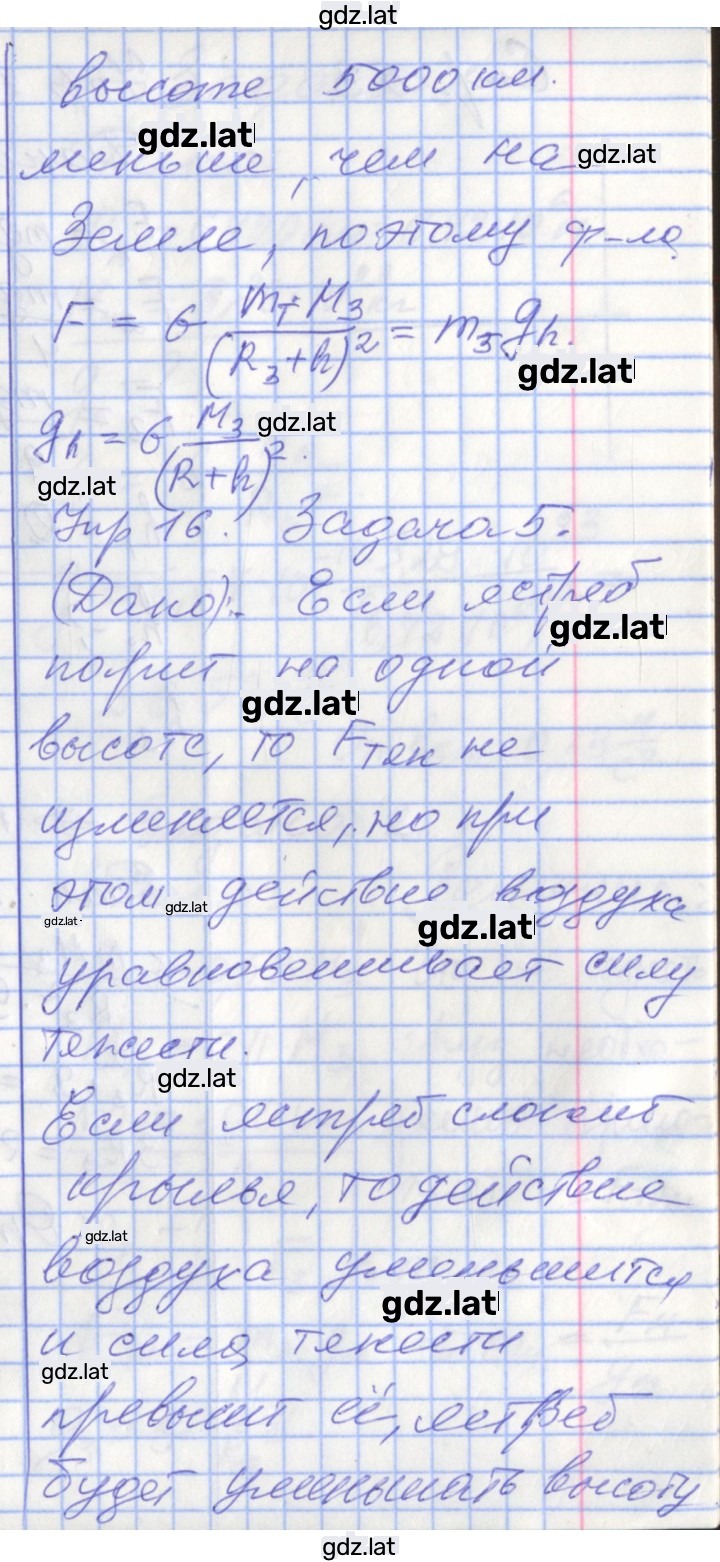 gdz.lat
высоте 5000 км.
gdz.lat
меньше, чем на
gdz.lat
Земле, поэтому ф-ла
F = G (mт · Mз)/(Rз+h)² = mз gh.
gdz.lat
gh = G Mз/(R+h)².
gdz.lat
gdz.lat
Упр 16. Задача 5.
(Дано):. Если ястреб
gdz.lat
парит на одной
gdz.lat
высоте, то Fтяж не
изменяется, но при
этом действие воздуха
gdz.lat
gdz.lat
gdz.lat
уравновешивает силу
тяжести.
gdz.lat
Если ястреб сложит
крылья, то действие
gdz.lat
воздуха уменьшится
gdz.lat
и сила тяжести
gdz.lat
превысит её, ястреб
будет уменьшать высоту
gdz.lat